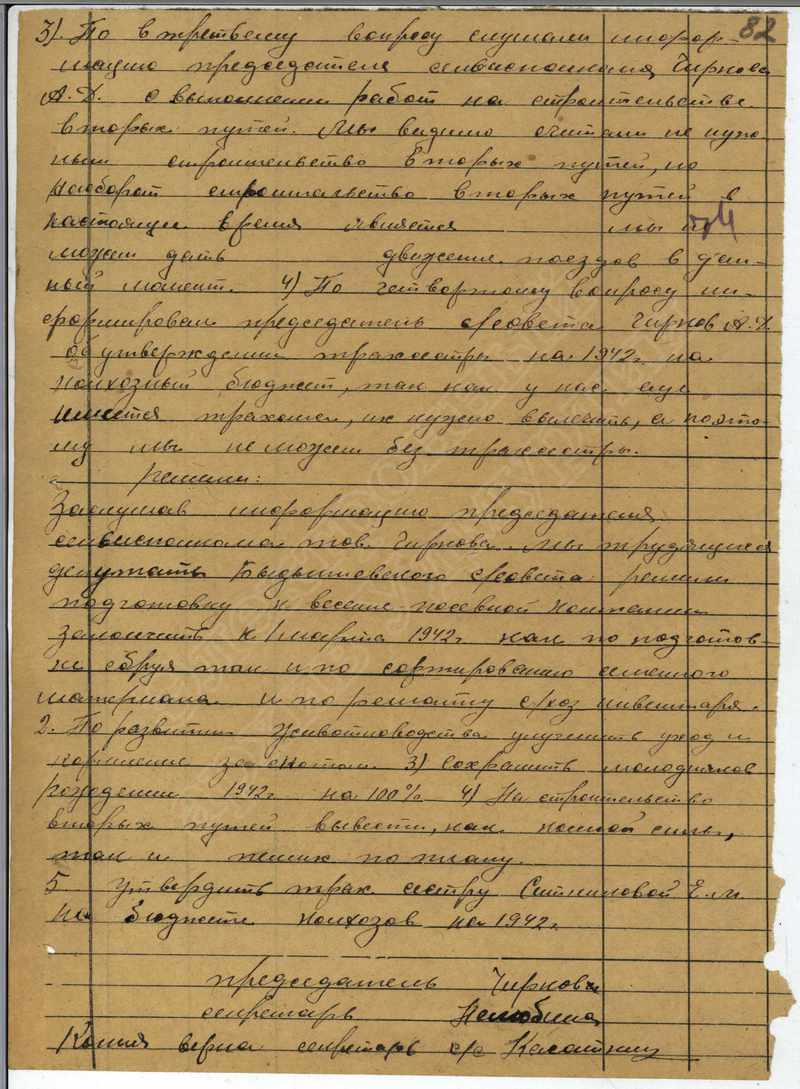 82
3). По в третьему вопросу слушали инфор-
мацию председателя сельисполкома Чирнова
А.Д. о выполнении работ на строительстве
вторых путей. Мы видимо считали не нуж-
ным строительство вторых путей, но
наоборот строительство вторых путей в
настоящее время является мы не
можем дать движения поездов в дан-
ный момент. 4) По четвертому вопросу ин-
формировал председатель с/совета Чирнов А.Д.
об утверждении трахсестры на 1942 г. на
колхозный бюджет, так как у нас еще
имеется трахома, их нужно вылечить, а поэто-
му мы не можем без трахсестры.
решили:
Заслушав информацию председателя
сельисполкома тов. Чирнова мы трудящиеся
депутаты с/совета решили
подготовку к весенне-посевной компании
закончить к 1 марта 1942 г. как по подготов-
ке сбруи так и по сортированию семенного
материала и по ремонту с/хоз инвентаря.
2. По развитию животноводства улучшить уход и
кормление за скотом 3) сохранить молодняков
рождения 1942 г. на 100% 4) На строительство
вторых путей вывести, как конной силы,
так и пеших по плану.
5 Утвердить трах сестру Ситниковой Е.М.
на бюджете колхозов на 1942 г.
председатель Чирнов
секретарь Нелюбина
Копия верна секретарь с/с